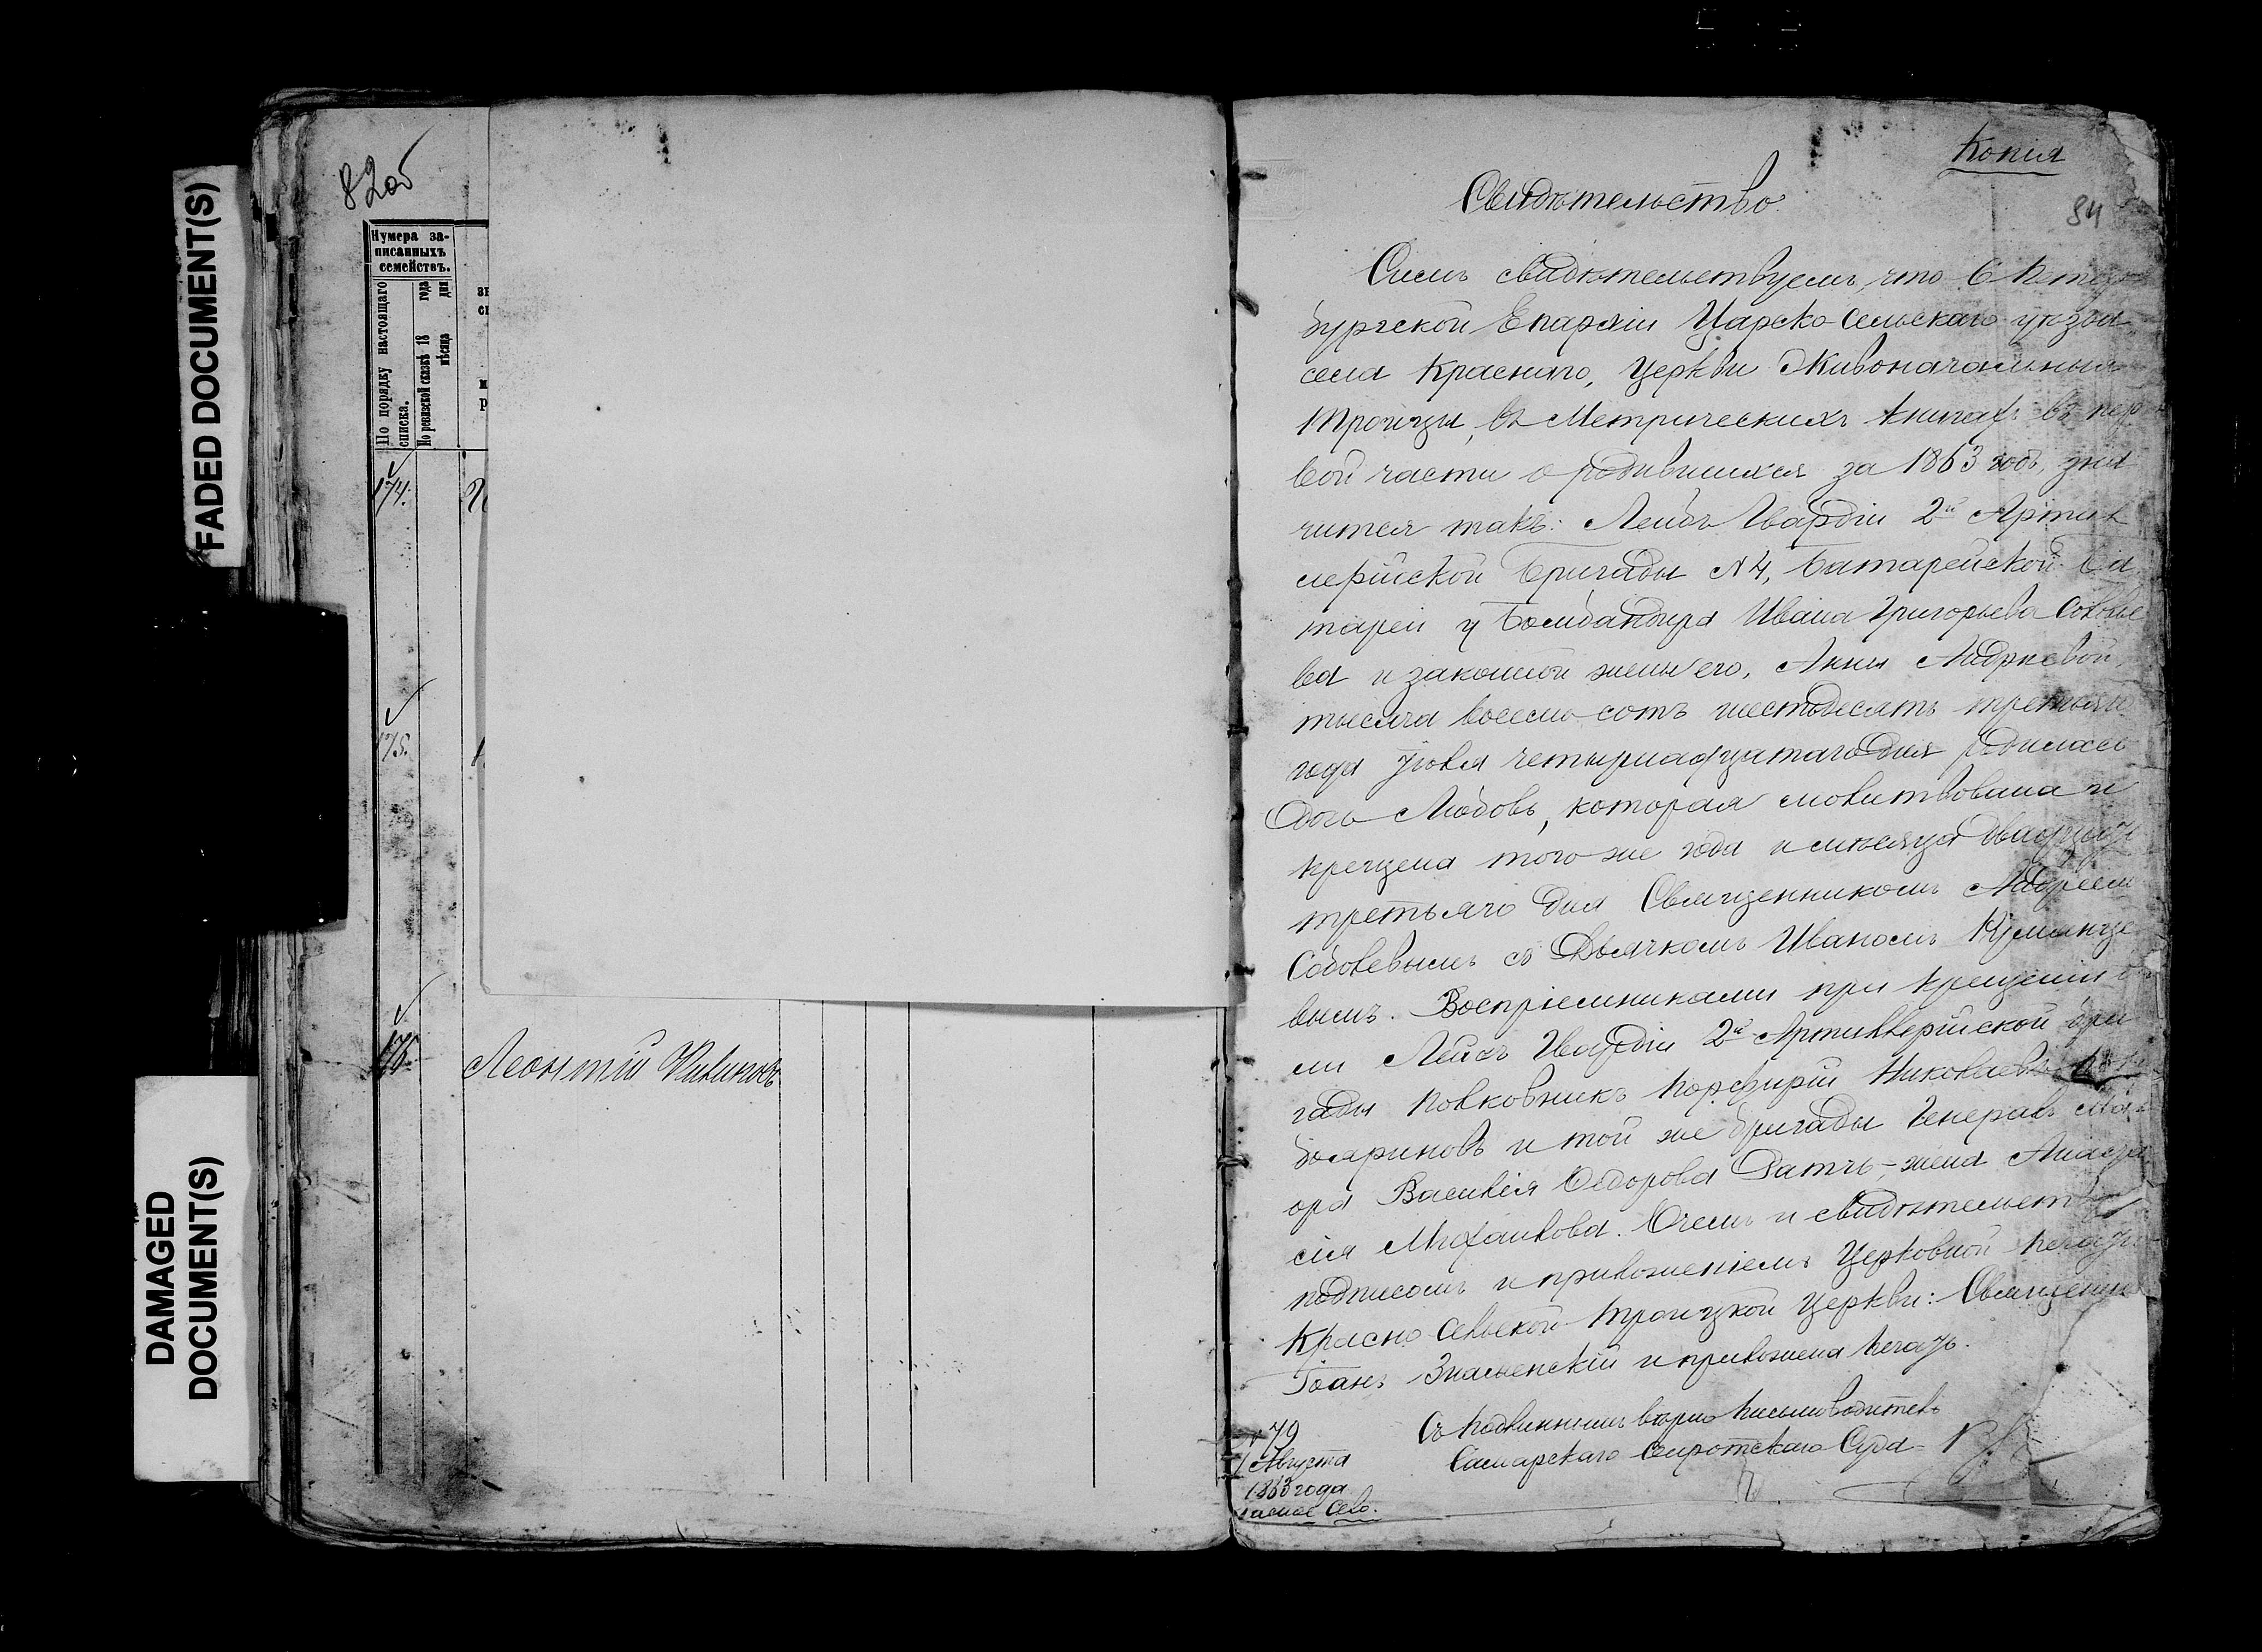 FADED DOCUMENT(S)
DAMAGED
DOCUMENT(S)
82об
Нумера за-
писанныхъ
семействъ.
По порядку настоящаго
списка.
По ревизской сказкѣ 18 года
мѣсяца дня
174.
175.
176.
Леонтій Филиповъ
Копія
84
Свидѣтельство
Симъ свидѣтельствуемъ, что С Петер
бургской Епархіи Царско-Сельскаго уѣзда
села Краснаго, Церкви Живоначальныя
Троицы, въ Метрическихъ книгахъ въ пер
вой части о родившихся за 1863 годъ, зна
чится такъ: Лейбъ Гвардіи 2й Артил
лерійской бригады N4, батарейской ба
тареи у Бомбандира Ивана Григорьева Соловье
ва и законной жены его, Анны Андреевой,
тысяча восемь-сотъ шестьдесятъ третьяго
года Іюля четырнадцатаго дня родилась
дочь Любовь, которая молитвована и
крещена того-же года и мѣсяца двадцать
третьяго дня Священникомъ Андреем
Соболевымъ съ Дьячкомъ Иваномъ Румянце
вымъ. Воспріемниками при крещеніи бы
ли Лейбъ Гвардіи 2й Артиллерійской бри
гады Полковникъ Порфирій Николаевъ
бояриновъ и той же бригады Генералъ Маі
ора Василія Ѳедорова Ратчъ-жена Анаста
сія Михаилова. О чемъ и свидѣтельству
подписомъ и приложеніемъ Церковной печати
Красно Сельской Троицкой Церкви: Священникъ
Іоанъ Знаменскій и приложена печать.
№ 79
Августа
1863 года
Красное Село.
Съ подлиннымъ вѣрно Письмоводитель
Самарскаго Сиротскаго Суда